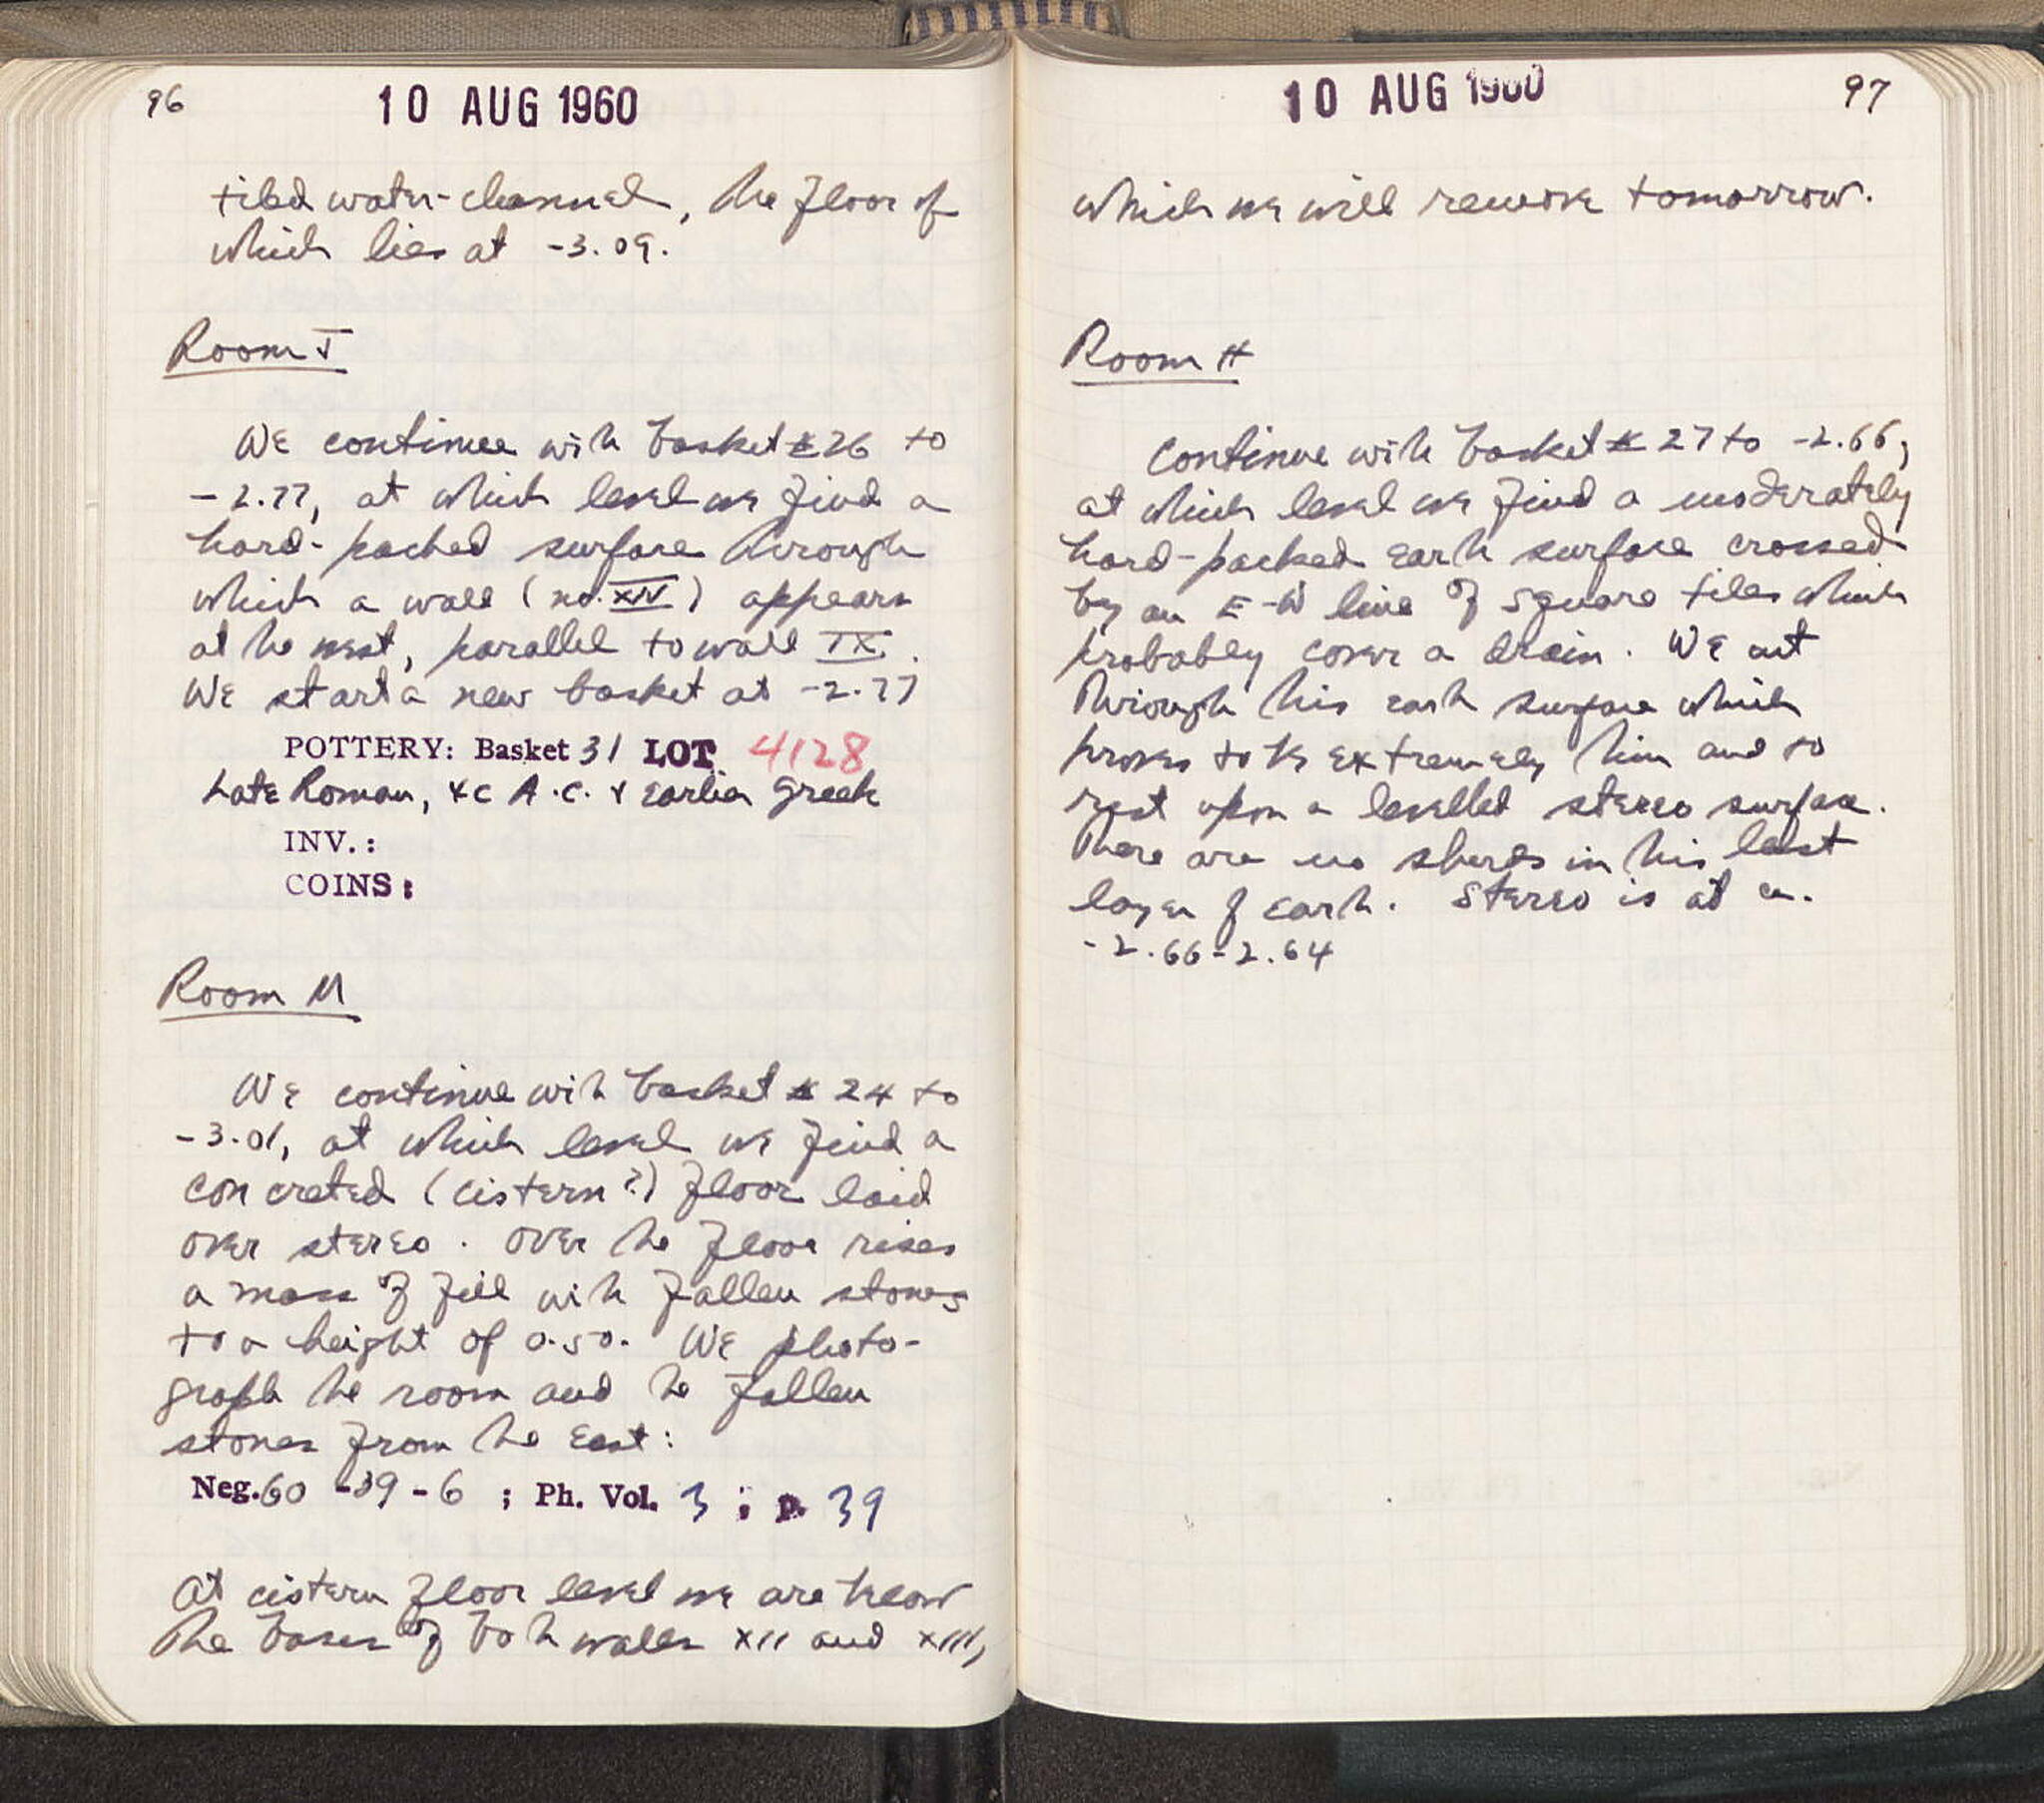 96
10 AUG 1960
tiled water-channel, the floor of
which lies at -3.09.
Room J
We continue with basket # 26 to
-2.77, at which level we find a
hard-packed surface through
which a wall (no. XIV) appears
at the west, parallel to wall IX.
We start a new basket at -2.77
POTTERY: Basket 31 LOT 4128
Late Roman, 4c A.C. & Earlier Greek
INV.:
COINS:
Room M
We continue with basket # 24 to
-3.01, at which level we find a
concreted (cistern?) floor laid
over stereo. Over the floor rises
a mass of fill with fallen stones
to a height of 0.50. We photo-
graph the room and the fallen
stones from the East:
Neg. 60 -39 - 6 ; Ph. Vol. 3 ; p. 39
At cistern floor level we are below
the bases of both walls XII and XIII,
10 AUG 1960
97
which we will remove tomorrow.
Room H
Continue with basket # 27 to -2.66,
at which level we find a moderately
hard-packed earth surface crossed
by an E-W line of square tiles which
probably cover a drain. We cut
through this earth surface which
proves to be extremely thin and to
rest upon a levelled stereo surface.
There are no sherds in this last
layer of earth. Stereo is at ca.
-2.66-2.64